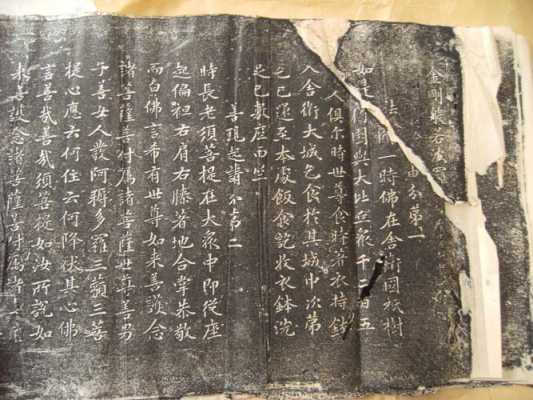 金剛般若波羅
由分第一
法一時佛在舍衛國祇樹
如是園與大比丘眾千二百五
人俱尔時世尊食時著衣持鉢
入舍衛大城乞食於其城中次第
乞已還至本處飯食訖收衣鉢洗
足已敷座而坐
善現起請分第二
時長老須菩提在大眾中即從座
起偏袒右肩右膝著地合掌恭敬
而白佛言希有世尊如來善護念
諸菩薩善付囑諸菩薩世尊善男
子善女人發阿耨多羅三藐三菩
提心應云何住云何降伏其心佛
言善哉善哉須菩提如汝所說如
来善護念諸菩薩善付囑諸